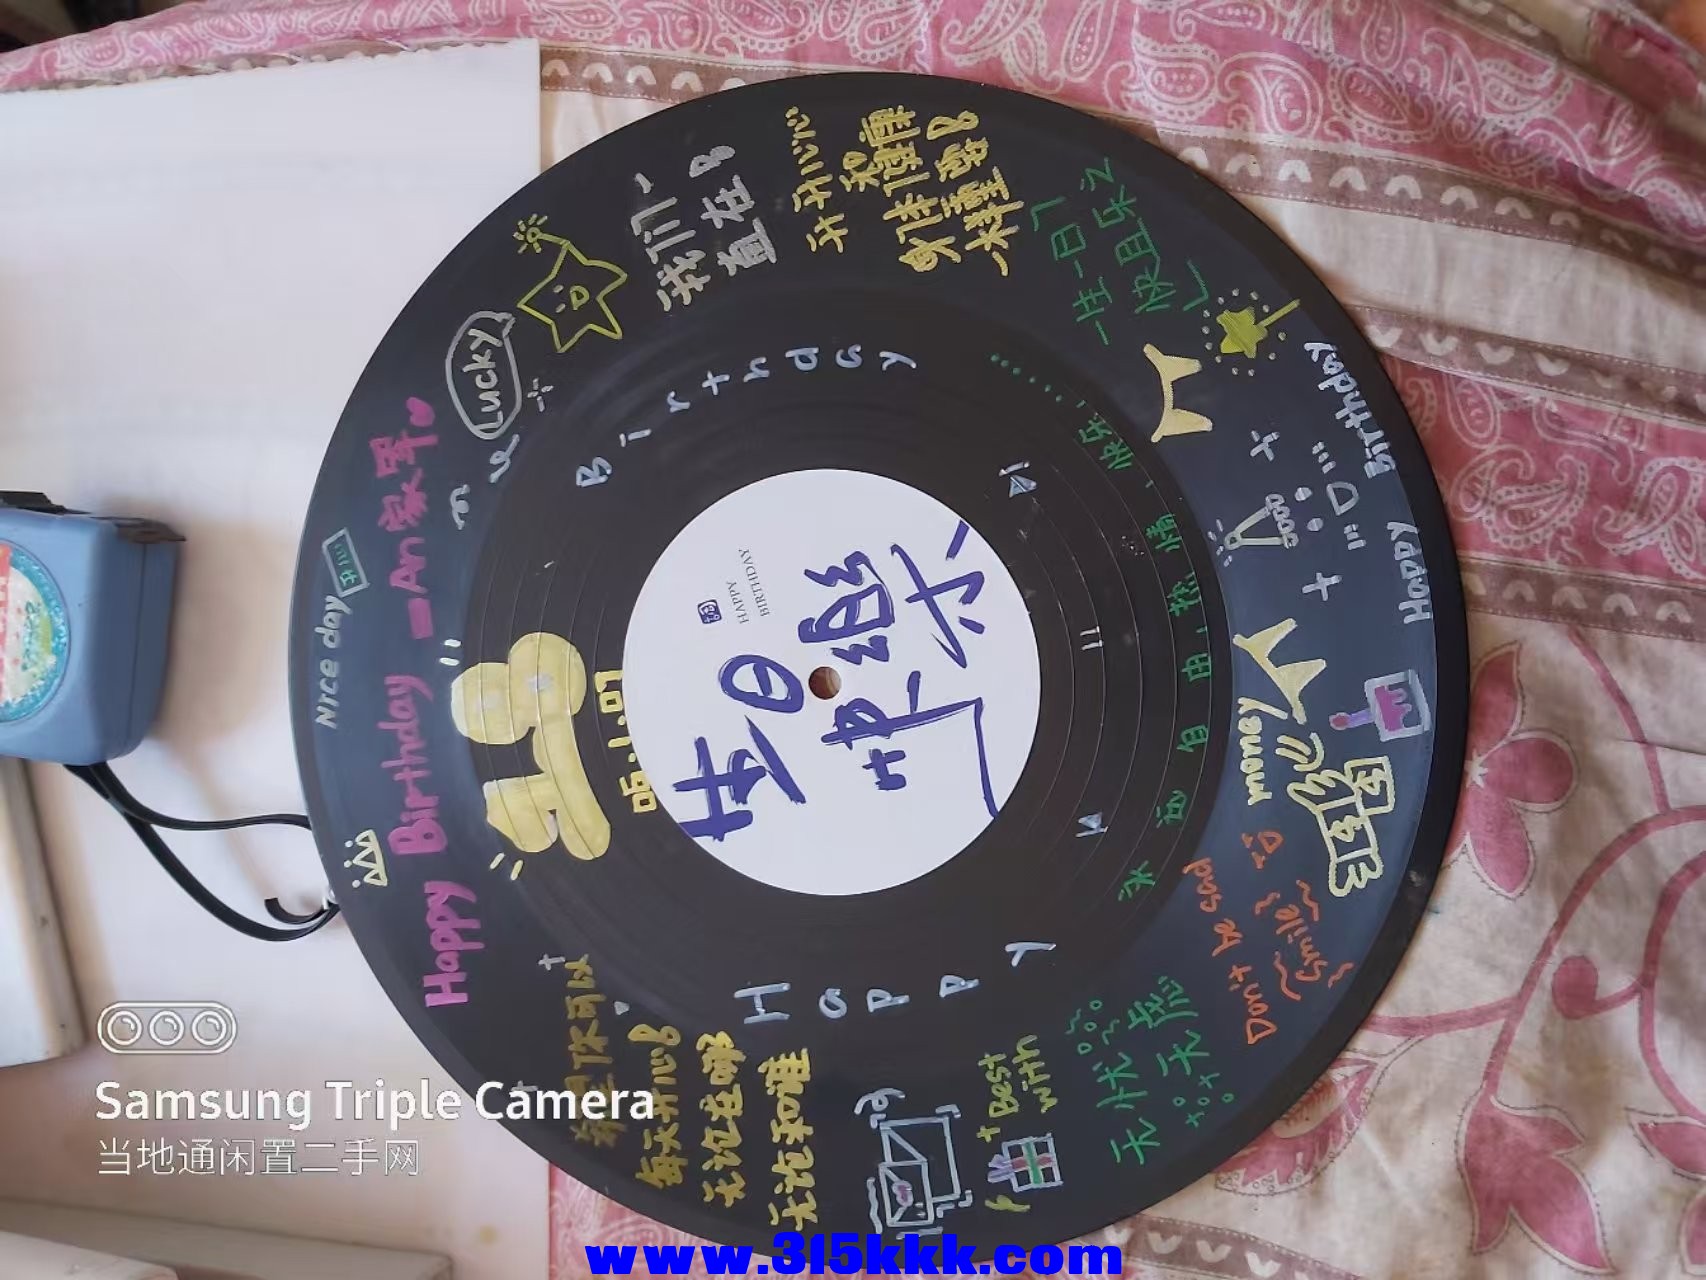 我们一
直在
开开心心
和
身体健康
一样重要
一往一日
快且乐之
Lucky
Birthday
Happy Birthday
An
Nice day
开心
06.1.07
HAPPY
BIRTHDAY
生日
快乐
Happy
永远自由,热情,快乐
Happy Birthday
Good
money
Don't be sad
Smile
无忧无虑
Best
with
Big
希望你可以
每天开心
无论在哪
无论和谁
Samsung Triple Camera
当地通闲置二手网
www.315kkk.com